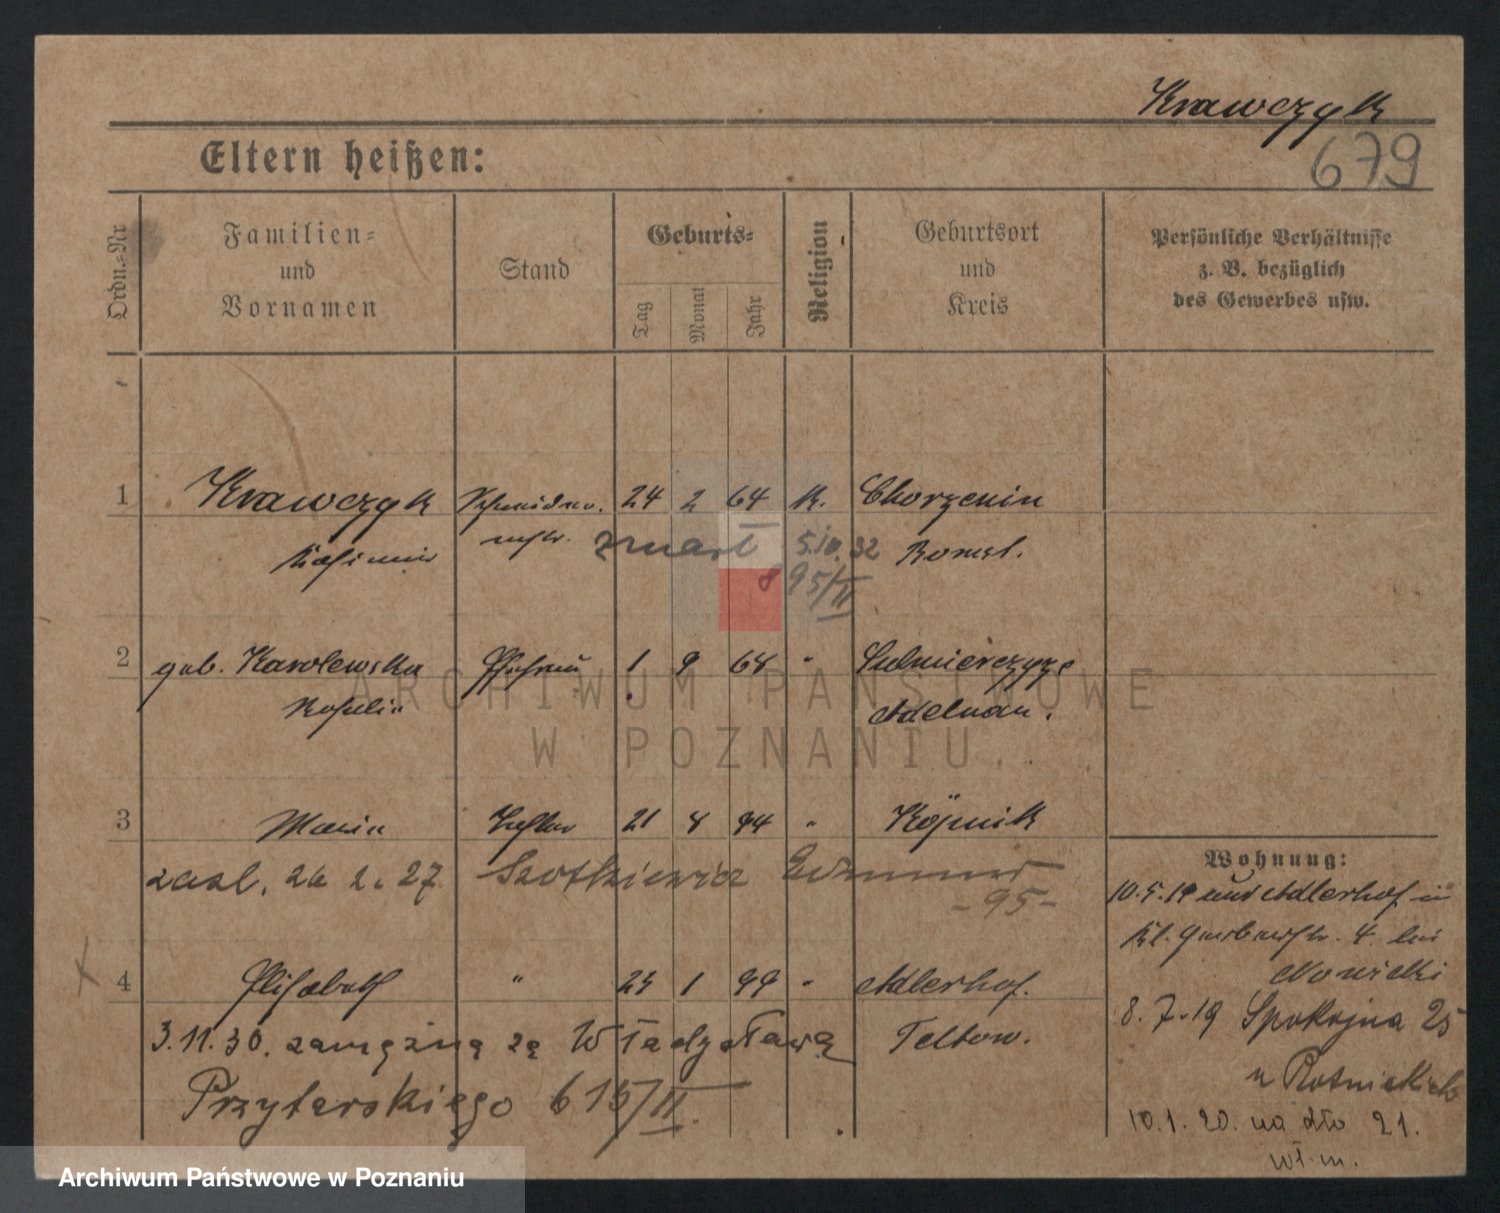 Krawczyk
679
Eltern heißen:
Ordn.-Nr
Familien-
und
Vornamen
Stand
Geburts-
Tag
Monat
Jahr
Religion
Geburtsort
und
Kreis
Persönliche Verhältnisse
z. B. bezüglich
des Gewerbes usw.
1 Krawczyk Schneider- 24 2 64 K. Chorzemin
Kasimir mstr. zmarł 5.10.32 Bomst.
895/II
2 geb. Karolewska Ehefrau 1 9 68 " Sulmierzyze
Rosalia Adelnau.
3 Maria Tochter 21 8 94 " Köpnik
zaśl. 26 2. 27 Szotkiewicz Edmund
- 95 -
4 Elisabeth " 23 1 99 " Adlerhof.
3.11.30. zamężną za Władysława Teltow.
Przyterskiego 615/II
Wohnung:
10.5.19 Adlerhof
Kl. Gerberstr. 4. bei
Nowicki
8.7.19 Spokojna 25
u
10.1.20. na dto 21.
wł. m.
ARCHIWUM PAŃSTWOWE
W POZNANIU
Archiwum Państwowe w Poznaniu